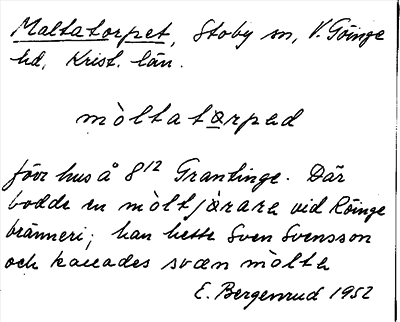 Maltatorpet, Stoby sn, V. Göinge
hd, Krist. län.
mòltatårped
förr hus å 8¹² Grantinge. Där
bodde en mòltjørara vid Röinge
bränneri; han hette Sven Svensson
och kallades svæn mòlta
E. Bergenrud 1952